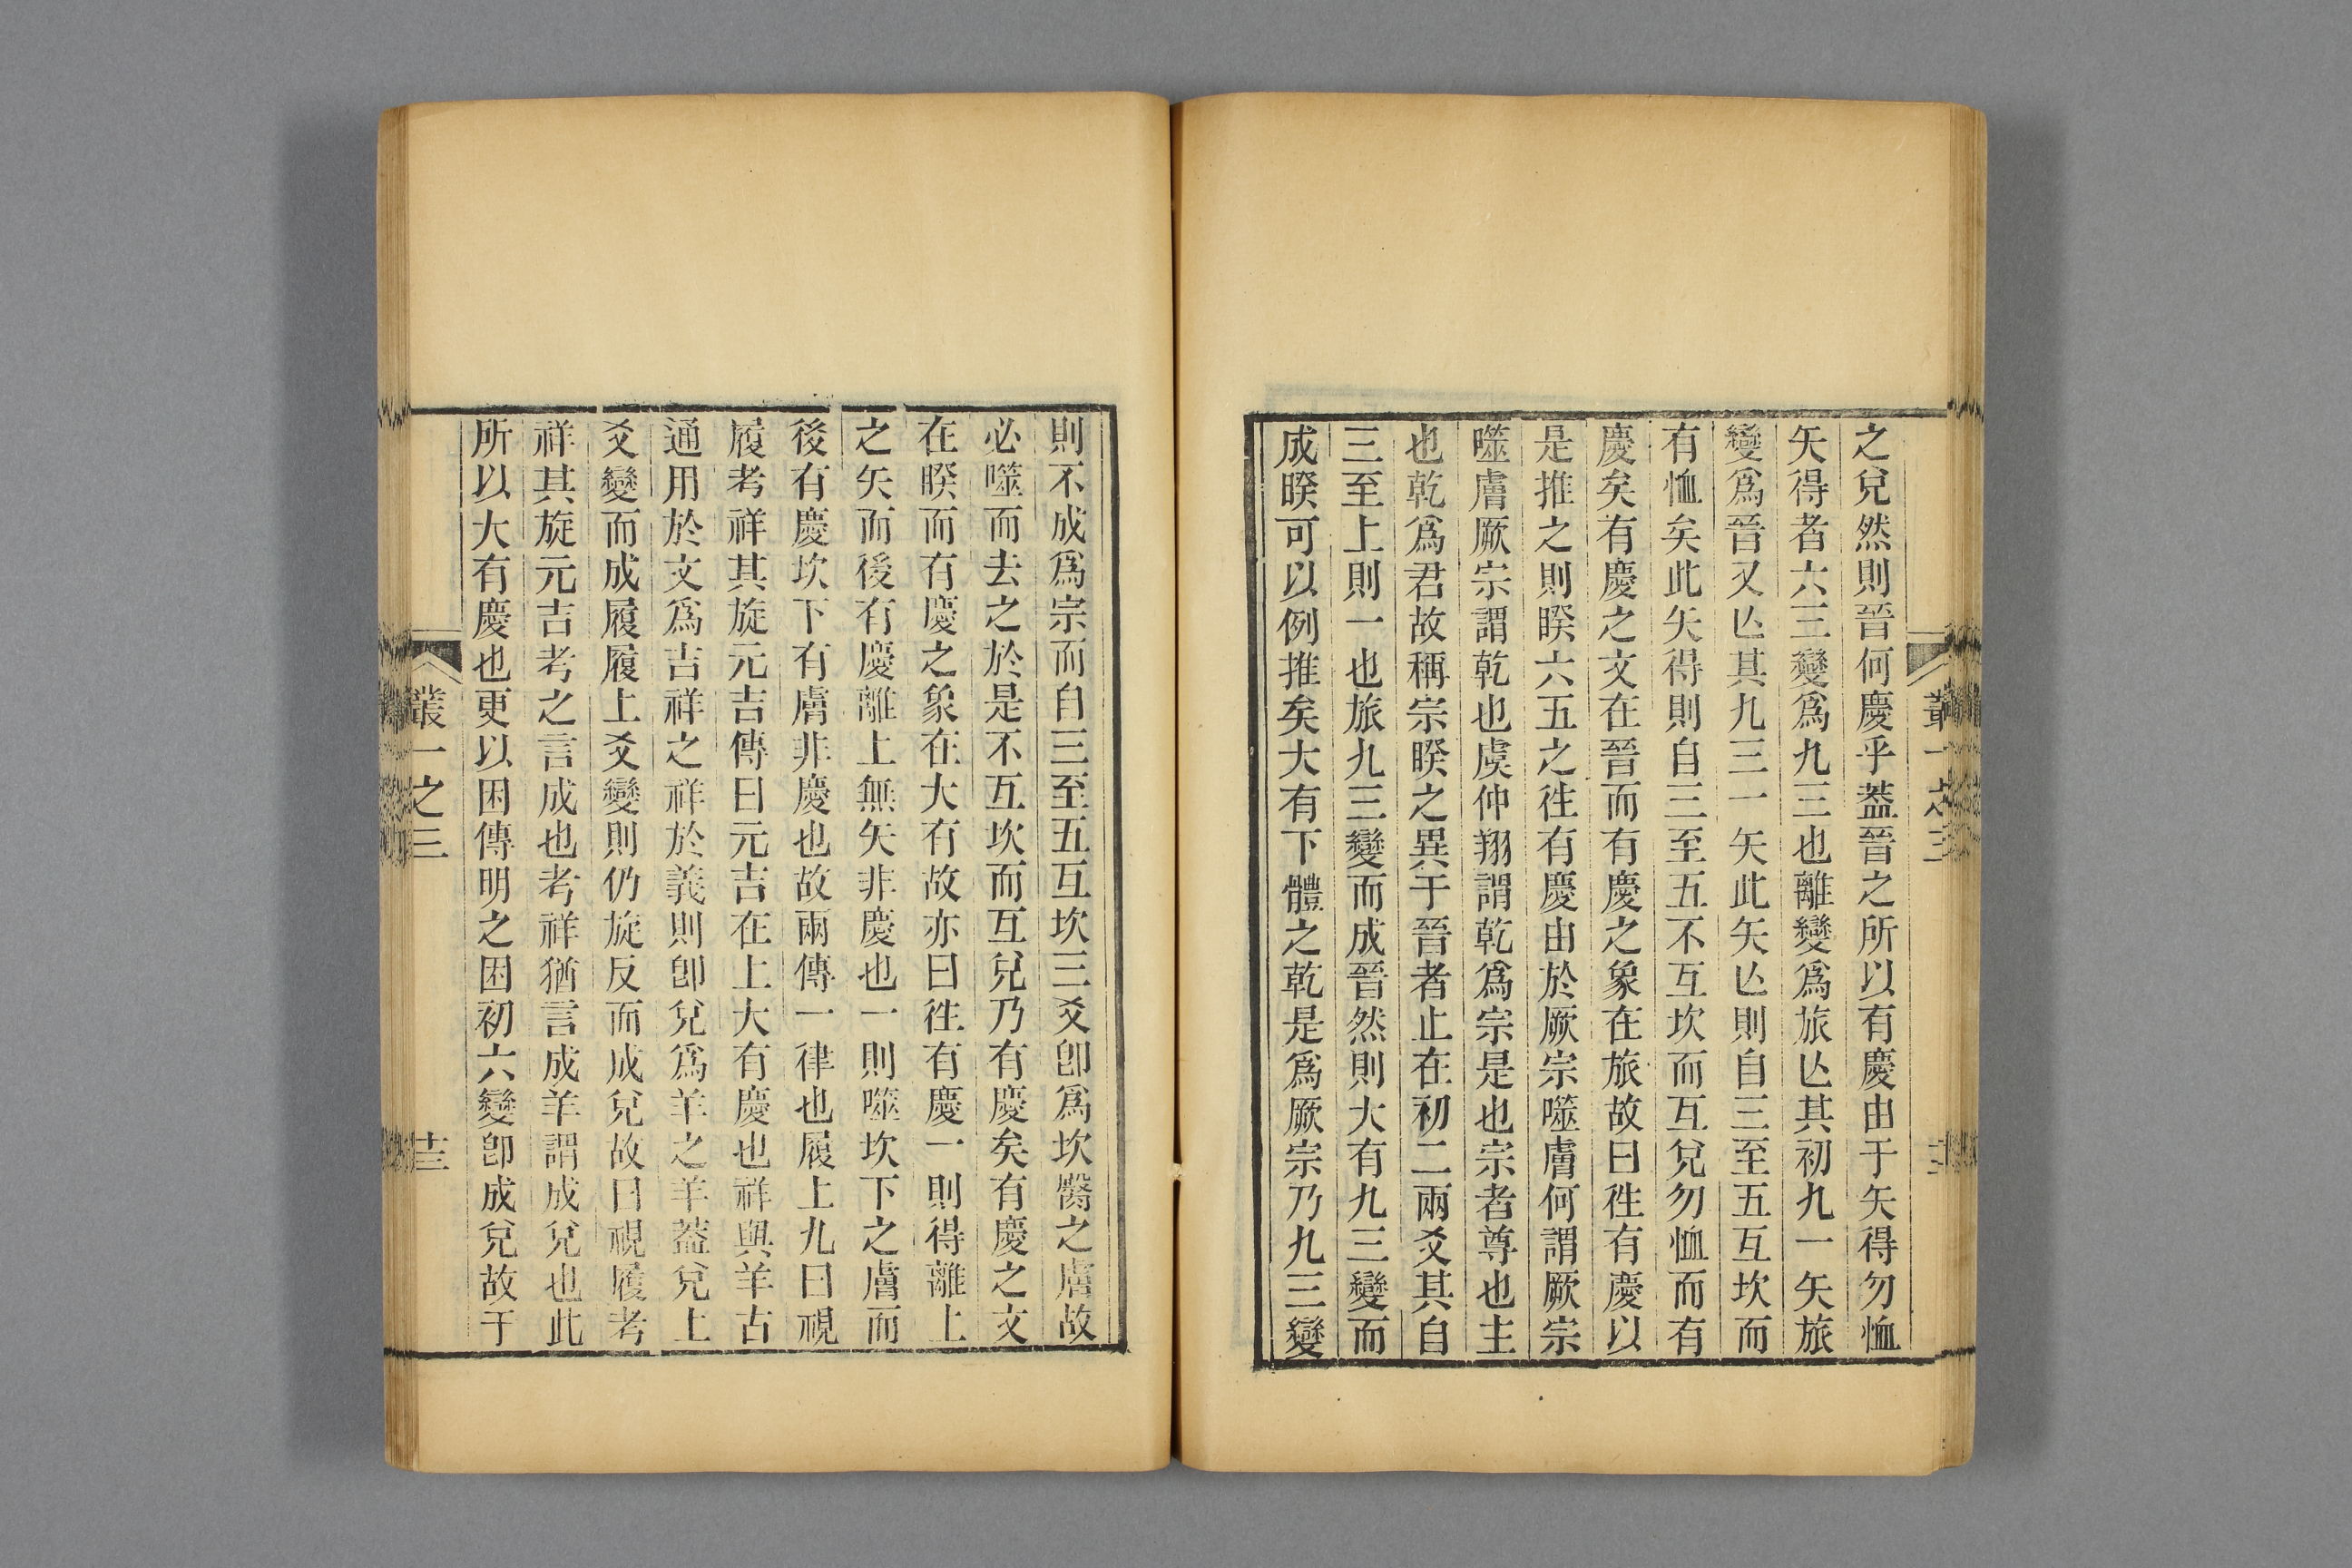 之兌然則晉何慶乎葢晉之所以有慶由于矢得勿恤
矢得者六三變爲九三也離變爲旅亾其初九一矢旅
變爲晉又亾其九三一矢此矢亾則自三至五互坎而
有恤矣此矢得則自三至五不互坎而互兌勿恤而有
慶矣有慶之文在晉而有慶之象在旅故曰徃有慶以
是推之則睽六五之徃有慶由於厥宗噬膚何謂厥宗
噬膚厥宗謂乾也虞仲翔謂乾爲宗是也宗者尊也主
也乾爲君故稱宗睽之異于晉者止在初二兩爻其自
三至上則一也旅九三變而成晉然則大有九三變而
成睽可以例推矣大有下體之乾是爲厥宗乃九三變
則不成爲宗而自三至五互坎三爻卽爲坎醫之膚故
必噬而去之於是不互坎而互兌乃有慶矣有慶之文
在睽而有慶之象在大有故亦曰徃有慶一則得離上
之矢而後有慶離上無矢非慶也一則噬坎下之膚而
後有慶坎下有膚非慶也故兩傳一律也履上九曰視
履考祥其旋元吉傳曰元吉在上大有慶也祥與羊古
通用於文爲吉祥之祥於義則卽兌爲羊之羊葢兌上
爻變而成履履上爻變則仍旋反而成兌故曰視履考
祥其旋元吉考之言成也考祥猶言成羊謂成兌也此
所以大有慶也更以困傳明之困初六變卽成兌故于
叢一之三